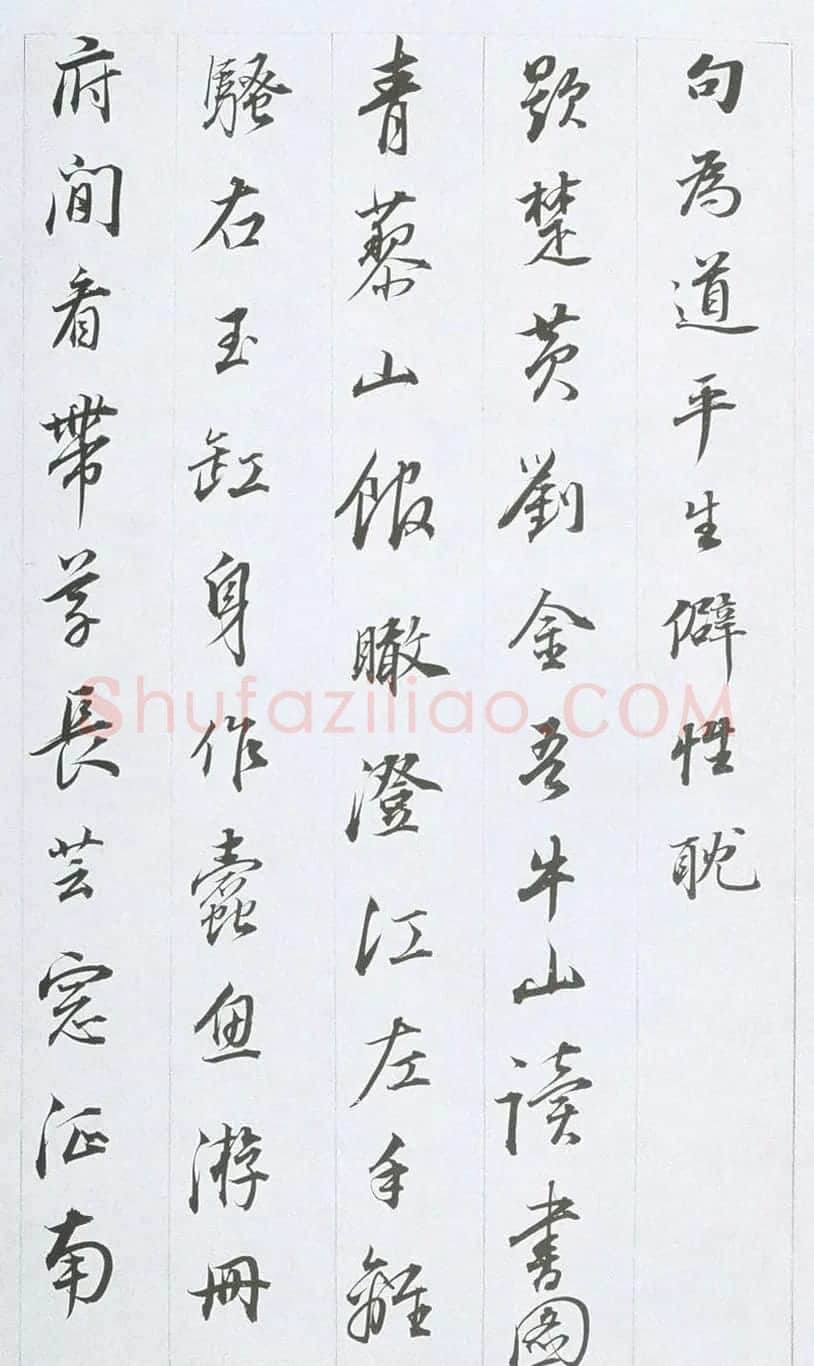 句為道平生僻性耽
題楚黄劉金吾牛山讀書圖
青藜山館瞰澄江左手離
騷右玉缸身作蠹魚游冊
府閒看帶草長芸窓征南
Shufaziliao.COM